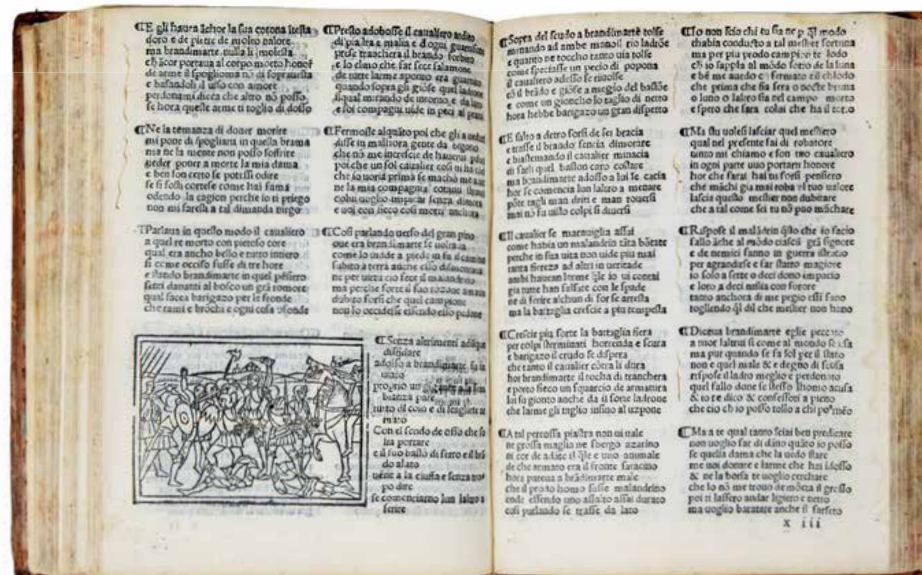 ¶E gli haura āchor la sua corona in testa
doro e de pietre de molto ualore
ma brandimarte nulla li molesta
che ācor portaua al corpo morto honor
de arme il spoglioma nō di soprauesta
e basandoli il uiso con amore
perdonami dicea che altro nō posso
se hora queste arme ti toglio di dosso
¶Ne la temanza di douer morire
mi pone di spogliarti in questa brama
ma ne la mente non posso soffrire
ueder penar a morte la mia dama
e ben son certo se potessi odire
se si fosti cortese come hai fama
odendo la cagion perche io ti priego
non mi faresti a tal dimanda niego
¶Parlaua in questo modo il caualiero
a quel re morto con pietoso core
qual era anchor bello e tutto intiero
si come occiso fusse di tre hore
e stando brandimarte in quel pēsiero
setti dananti al bosco un grā romore
qual facea barigazo per le fronde
che rami e brochi e ogni cosa asconde
¶Presto adobosse il caualiero ardito
di piastra e malia e d ogni guarnisone
prese tranchera il brando forbito
e lo elmo che fat fece salamone
de tutte larme aponto era guarnito
quando sopra gli giōse quel ladrone
ilqual mirando de intorno
e loi compagni uide in peci al prato
¶Fermosse alquāto poi che gli a ueduti
disse in mallhora gente da bigonzo
che nō me increscie de hauerui
poi che un sol caualier cosi ni ha
che io uoria prima se macho me
ne la mia compagnia cotanti
colui uoglio impicar senza dimora
e uoi con ricco cosi morti anchora
¶Cosi parlando uerso del gran pino
oue era brandimarte se uoltaua
come lo uide a piede in su il camino
subito a terra anche ello dismontaua
ne per uirtu cio fece il malandrino
ma perche forte il suo rōzone amaua
dubito forsi che quel campione
non lo occidesse essendo ello pedone
¶Senza altrimenti adōque
disfidare
adosso a brandimarte fu in
uiato
proprio un gigante a la sem
bianza pare
tutto di coio e di scaglie ar
mato
Con el scudo de osso che so
lea portare
e il suo bastō di ferro e il brā
do alato
uene a la ciuffa e senza tro
po dire
se comenciarno lun laltro a
ferire
¶Sopra del scudo a brandimarte tolse
mirando ad ambe mano il rio ladrōe
e quanto ne toccho tanto uia tolse
come speciasse un pecio di popona
il caualiero adesso se riuolse
cō il brādo e giōse a megio del bastōe
e come un gioncho lo taglio di netto
hora hebbe barigazo un gran dispetto
¶E salto a dretto forsi de sei bracia
e trasse il brando sencia dimorare
e biastemando il caualier minacia
di farli quel baston caro costare
ma brandimarte adosso a lui se cacia
hor se comencia lun laltro a menare
pōte tagli man driti e man rouersi
mai nō fu uisto colpi si diuersi
¶Il caualier se marauiglia assai
come habia un malandrin tāta bōtate
perche in sua uita non uide piu mai
tanta fierezo ad altri in ueritade
ambi hauean larme
gia tutte han falsate con le spade
ne di ferire alchun di for se arresta
ma la battaglia crescie a piu tempesta
¶Crescie piu forte la battaglia fiera
per colpi sterminati horrenda e scura
e barigazo il crudo se dispera
che tanto il caualier cōtra li dura
hor brandimarte il tocha di tranchera
e porto seco un squarcio de armatura
lui fu gionto anche da il forte ladrone
che larme gli taglio insino al uzpone
¶A tal percossa piastra non ui uale
ne grossa maglia ne sbergo azarino
ni cor de adice il qle e uno anumale
de che armato era il fronte saracino
hora pareua a brādimarte male
che il pro to homo fusse malandrino
onde essendo uno assalto assai durato
cosi parlando se trasse da lato
¶Io non scio chi tu sia ne p ql modo
thabia conducto a tal mestier fortuna
ma per piu prodo campion te lodo
ch io sappia al mōdo sotto de la luna
e bē me auedo e fermato e il chiodo
che prima che sia sera o nocte bruna
o luno o laltro sia nel campo morto
e spero che sara colui che ha il torto
¶Ma stu uolesi lasciar quel mestiero
qual nel presente fai di robatore
uinto mi chiamo e son tuo caualiero
in ogni parte uuo portarti honore
hor che farai hai tu forsi pensiero
che māchi gia mai roba al tuo ualore
lascia questo mestier non dubitare
che a tal come sei tu nō puo māchare
¶Rispose il malādrin qsto che io facio
fallo āche al mōdo ciascū grā signore
e de nemici fanno in guerra istracio
per agrandirse e far stato magiore
io solo a sette o deci dono impacio
e loro a deci milia con furore
tanto anchora di me pegio essi fano
togliendo ql dil che mestier non hano
¶Diceua brandimarte eglie peccato
a tuor laltrui si come al mondo se usa
ma pur quando se fa sol per il stato
non e quel male & e degno di scusa
rispose il ladro meglio e perdonato
quel fallo donde se stesso lhomo acusa
& io te dico & confessoti a pieno
che cio ch io posso tollo a chi po mēo
¶Ma a te qual tanto sciai ben predicare
non uoglio far di dāno quāto io posso
se quella dama che la uedo stare
me uoi donare e larme che hai idosso
& ne la borsa te uoglio cerchare
che io nō me trouo de mōeta il grosso
poi ti lassero andar ligiero e netto
ma uoglio baratare anche il farseto
x iii